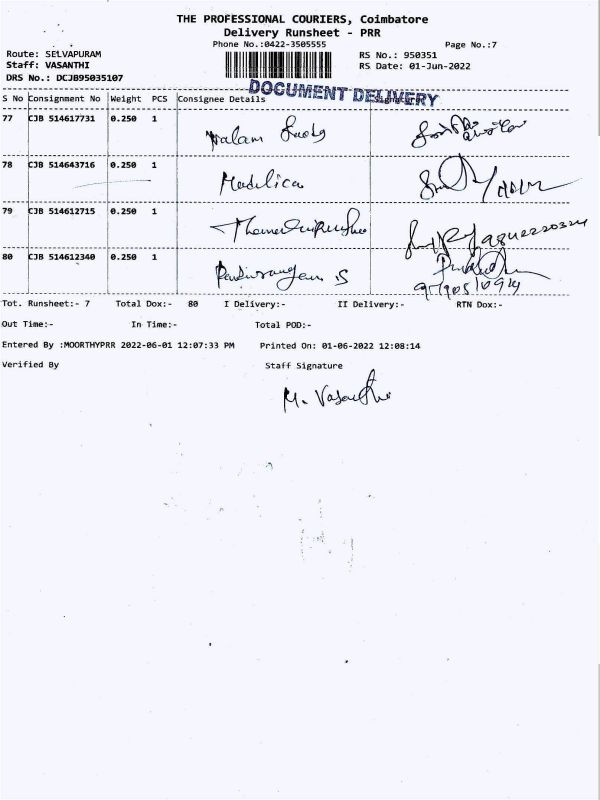 THE PROFESSIONAL COURIERS, Coimbatore
Delivery Runsheet - PRR
Phone No.:0422-3505555
Page No.:7
Route: SELVAPURAM
RS No.: 950351
Staff: VASANTHI
RS Date: 01-Jun-2022
DRS No.: DCJB95035107
DOCUMENT DELIVERY
S No Consignment No Weight PCS Consignee Details Signature
77 CJB 514617731 0.250 1
78 CJB 514643716 0.250 1
79 CJB 514612715 0.250 1
80 CJB 514612340 0.250 1 Pandurangan S
Tot. Runsheet:- 7 Total Dox:- 80 I Delivery:- II Delivery:- RTN Dox:-
Out Time:- In Time:- Total POD:-
Entered By :MOORTHYPRR 2022-06-01 12:07:33 PM Printed On: 01-06-2022 12:08:14
Verified By Staff Signature
M. Vasantha